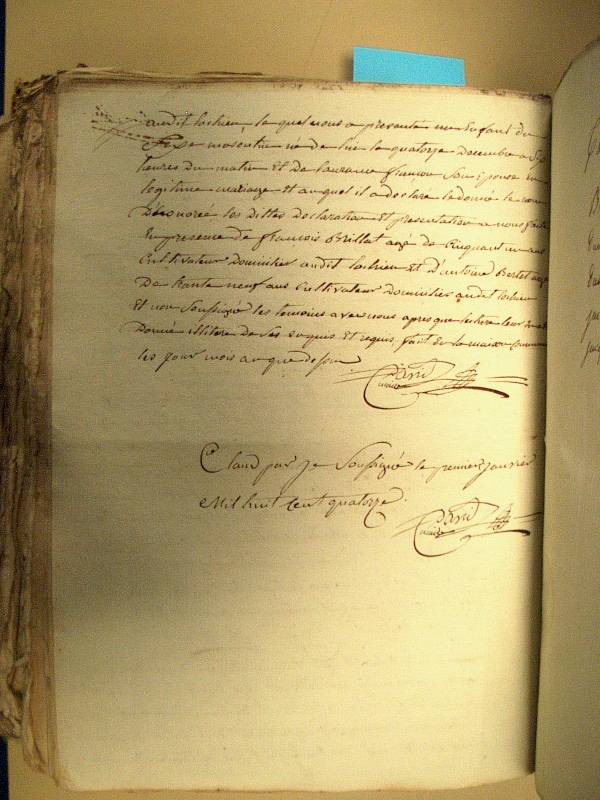 audit lochieu, le quel nous a presenté un Enfant du
Sexe masculin né de hier le quatorze Decembre a Sept
heures du matin Et De laurance Son Epouse En
legitime mariage Et auquel il a declaré le donné le nom
D'honorée les Dittes Declaration Et presentation a nous faite
En presence de francois Brillat agé de Cinquant un ans
Cultivateur Dominilier audit lochieu Et D'antoine Bertet agé
De trante neuf ans Cultivateur Dominilier audit lochieu
Et non Soussigné les temoins avec nous apres que lecture leur
Donné illitere de Ses enquis Et requis fait En la maison Commune
les jour mois an que dessus
David
maire
Claud par je Soussigné le premier janvier
Mil huit Cent quatorze.
David
maire